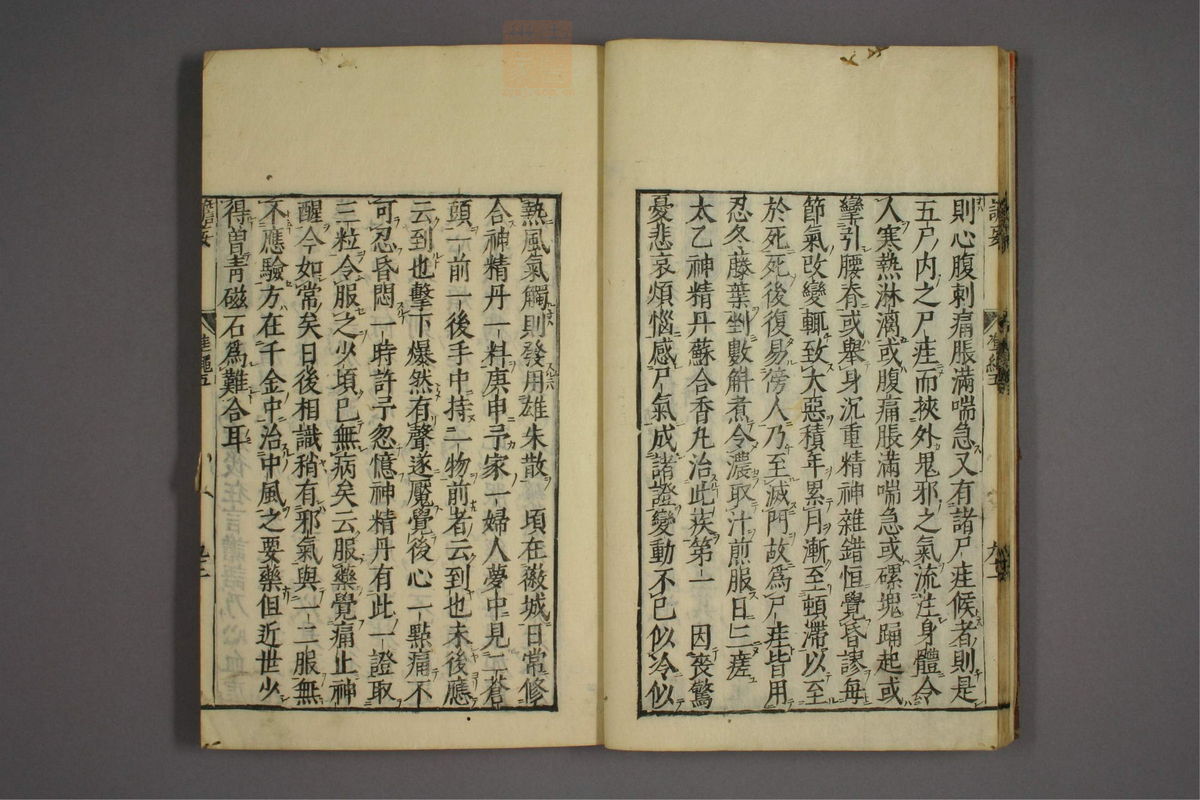 則心腹刺痛脹滿喘急又有諸尸疰候者則是
五尸内之尸疰而挾外鬼邪之氣流注身體令
人寒熱淋漓或腹痛脹滿喘急或磥塊踊起或
攣引腰脊或舉身沉重精神雜錯恒覺昏謬每
節氣改變輒致大惡積年累月漸至頓滯以至
於死死後復易傍人乃至滅門故爲尸疰皆用
忍冬藤葉剉數斛煮令濃取汁煎服日三瘥
太乙神精丹蘇合香丸治此疾第一　因喪驚
憂悲哀煩惱感尸氣成諸證變動不已似冷似
熱風氣觸則發用雄朱散　頃在徽城日常修
合神精丹一料庚申予家一婦人夢中見二蒼
頭一前一後手中持二物前者云到也未後應
云到也擊下爆然有聲遂魘覺後心一點痛不
可忍昏悶一時許予忽憶神精丹有此一證取
三粒令服之少頃已無病矣云服藥覺痛止神
醒今如常矣日後相識稍有邪氣與一二服無
不應驗方在千金中治中風之要藥但近世少
得曽青磁石爲難合耳